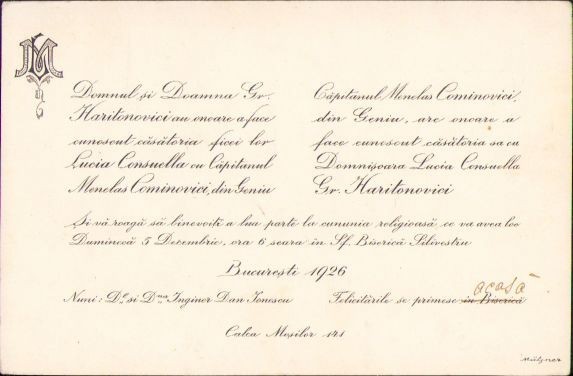 M
Domnul și Doamna Gr.
Haritonovici au onoare a face
cunoscut căsătoria ficei lor
Lucia Consuella cu Căpitanul
Menelas Cominovici, din Geniu
Căpitanul Menelas Cominovici,
din Geniu, are onoare a
face cunoscut căsătoria sa cu
Domnișoara Lucia Consuella
Gr. Haritonovici
Și vă roagă să binevoiți a lua parte la cununia religioasă ce va avea loc
Duminecă 5 Decembrie, ora 6 seara în Sf. Biserică Silivestru
București 1926
Nuni: D-l și D-na Inginer Dan Ionescu
Felicitările se primesc în Biserică
acasă
Calea Moșilor 141